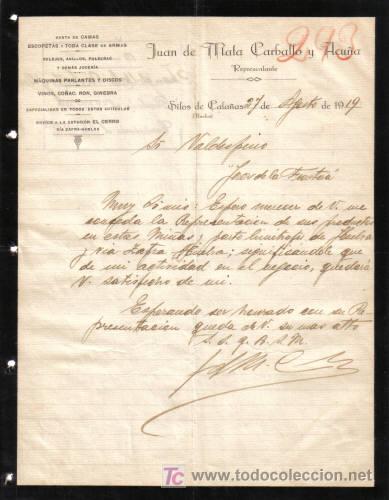 VENTA DE CAMAS
ESCOPETAS Y TODA CLASE DE ARMAS
RELOJES, ANILLOS, PULSERAS
Y DEMÁS JOYERÍA
MÁQUINAS PARLANTES Y DISCOS
VINOS, COÑAC, RON, GINEBRA
ESPECIALIDAD EN TODOS ESTOS ARTÍCULOS
ENVIOS A LA ESTACIÓN EL CERRO
VÍA ZAFRA-HUELVA
293
Juan de Mata Carballo y Acuña
Representante
Silos de Calañas 27 de Agosto de 1919
(Huelva)
Sr Valdespino
Jerez de la Frontera
Muy Sr mio: Espero merecer de V. me
conceda la Representacion de sus productos
en estas Minas, y parte limitrofe de Huelva
y via Zafra Huelva; significandole que
de mi actividad en el negocio, quedará
V. satisfecho de mi.
Esperando ser honrado con su Re-
presentacion queda de V. su mas atto
S. S. q. B. S. M.
TC
todocoleccion
www.todocoleccion.net